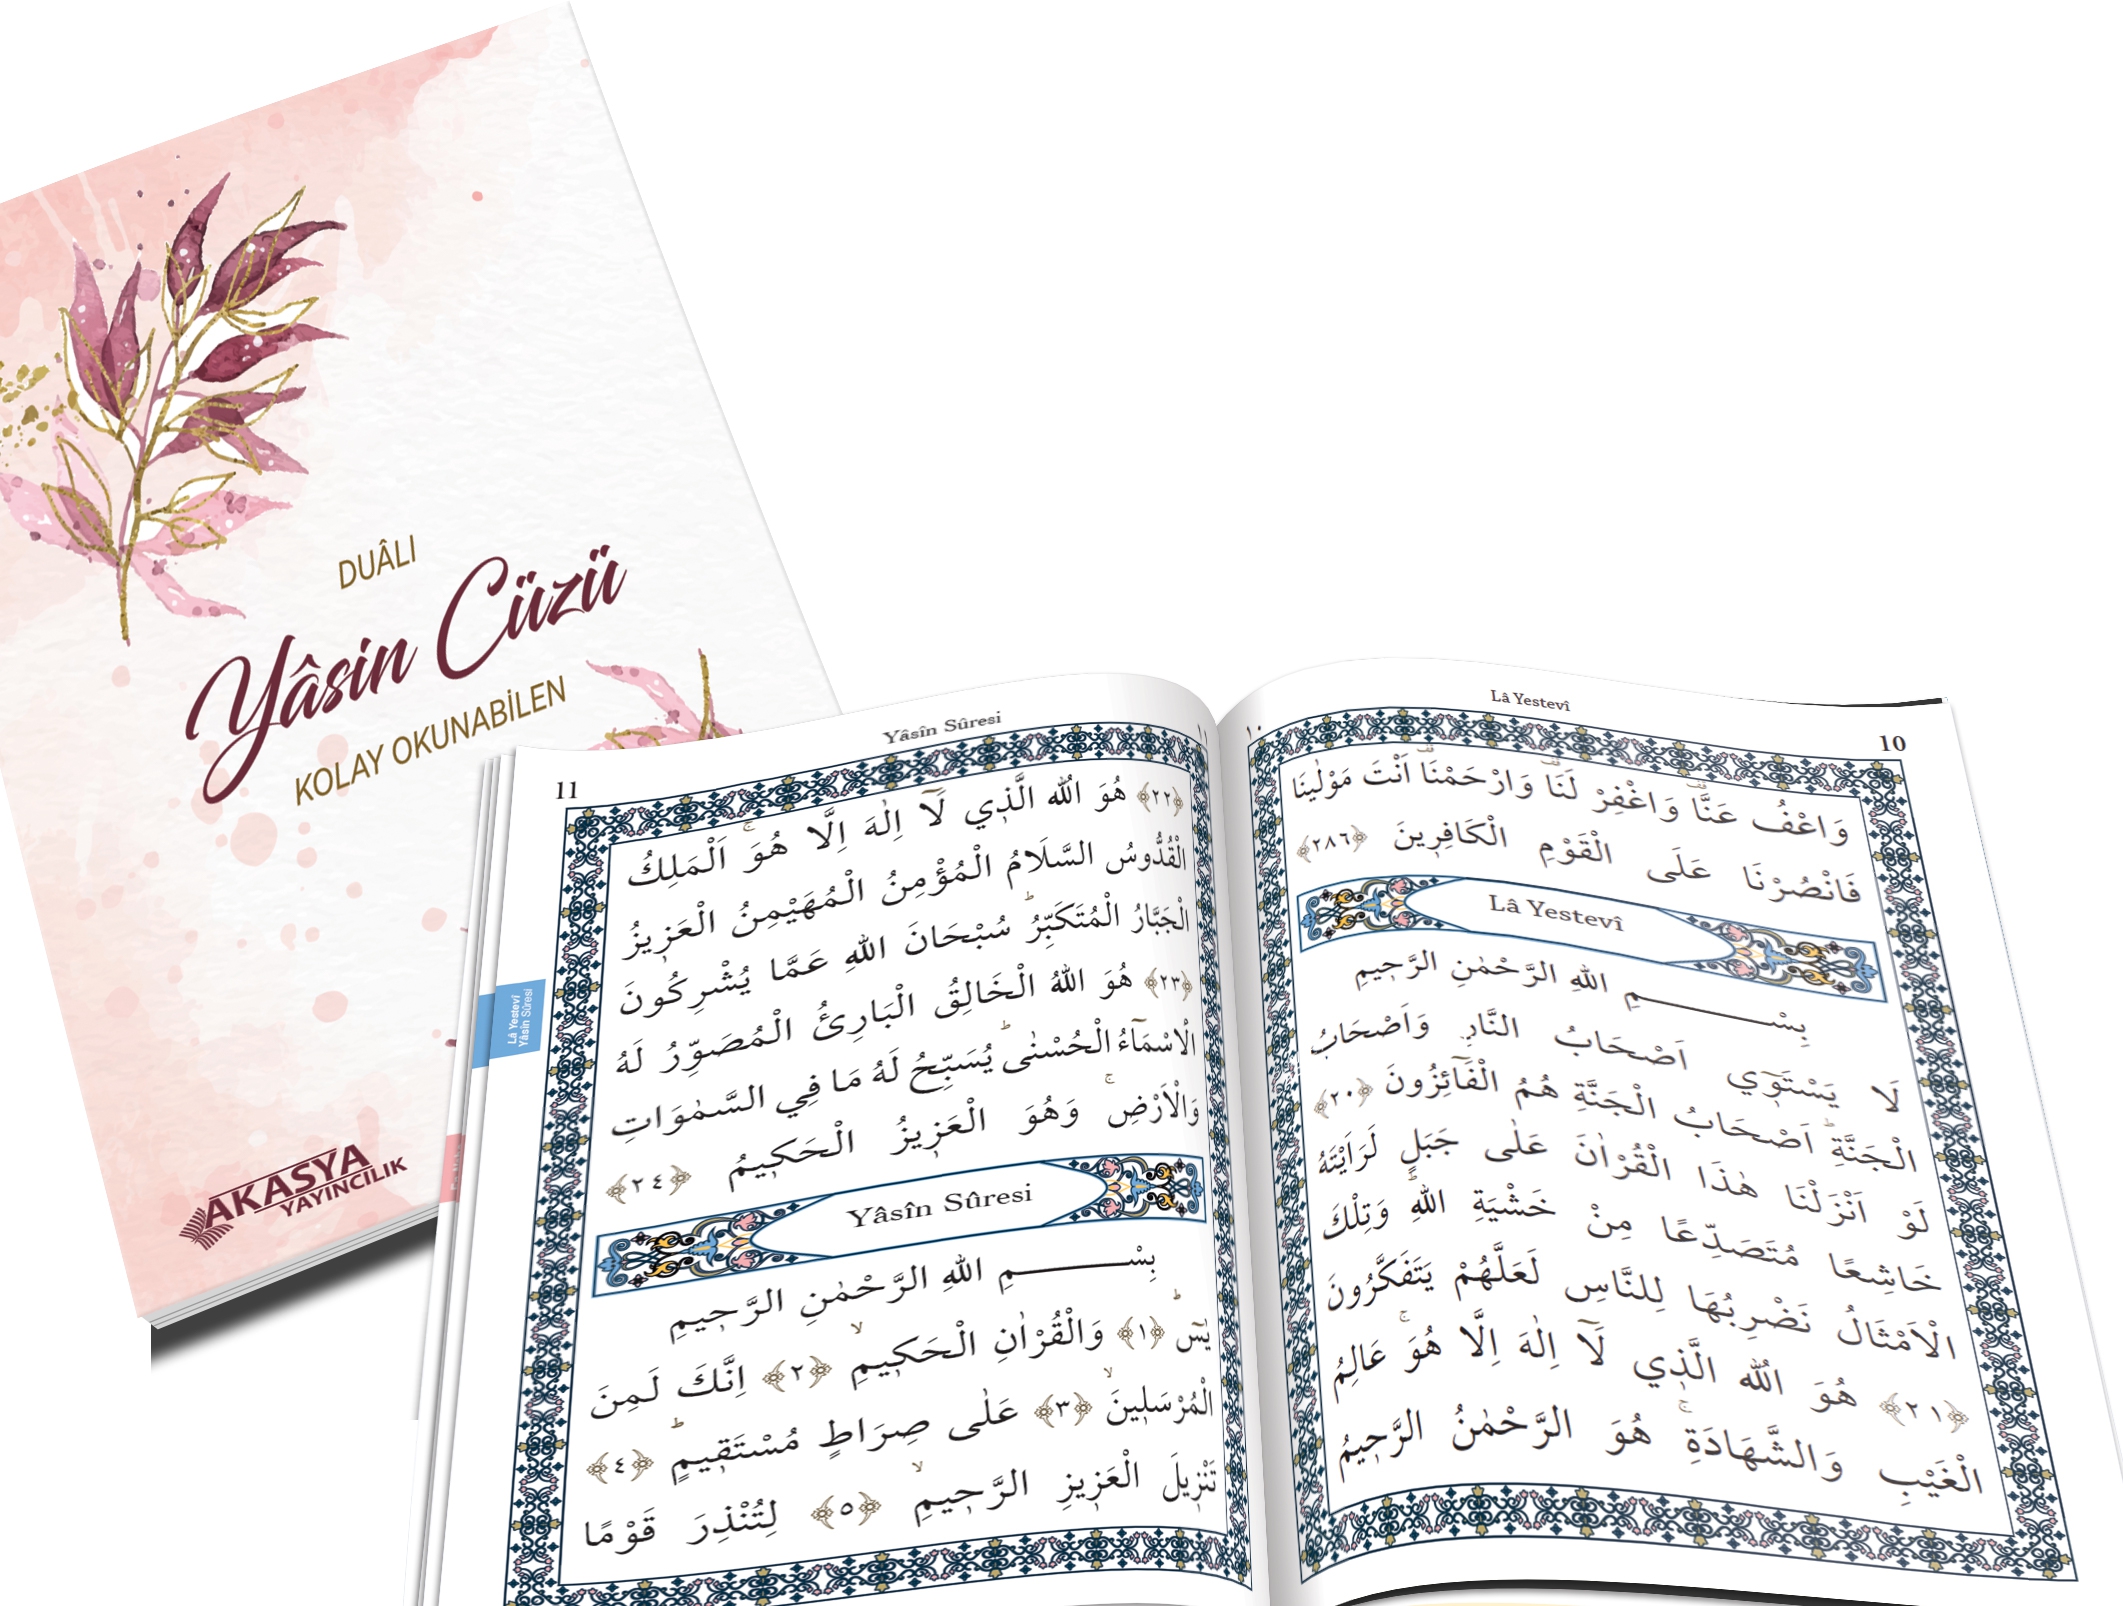 DUÂLI
Yâsin Cüzü
KOLAY OKUNABİLEN
AKASYA
YAYINCILIK
Lâ Yestevî
١٠
10
وَاعْفُ عَنَّاۗ وَاغْفِرْ لَنَاۗ وَارْحَمْنَاۗ اَنْتَ مَوْلٰينَا
فَانْصُرْنَا عَلَى الْقَوْمِ الْكَافِرٖينَ ﴿٢٨٦﴾
Lâ Yestevî
بِسْــــــــمِ اللهِ الرَّحْمٰنِ الرَّحٖيمِ
لَا يَسْتَوٖٓي اَصْحَابُ النَّارِ وَاَصْحَابُ
الْجَنَّةِؕ اَصْحَابُ الْجَنَّةِ هُمُ الْفَٓائِزُونَ ﴿٢٠﴾
لَوْ اَنْزَلْنَا هٰذَا الْقُرْاٰنَ عَلٰى جَبَلٍ لَرَاَيْتَهُ
خَاشِعًا مُتَصَدِّعًا مِنْ خَشْيَةِ اللهِؕ وَتِلْكَ
الْاَمْثَالُ نَضْرِبُهَا لِلنَّاسِ لَعَلَّهُمْ يَتَفَكَّرُونَ
﴿٢١﴾ هُوَ اللهُ الَّذٖي لَٓا اِلٰهَ اِلَّا هُوَۚ عَالِمُ
الْغَيْبِ وَالشَّهَادَةِۚ هُوَ الرَّحْمٰنُ الرَّحٖيمُ
11
Yâsîn Sûresi
١١
﴿٢٢﴾ هُوَ اللهُ الَّذٖي لَٓا اِلٰهَ اِلَّا هُوَۚ اَلْمَلِكُ
الْقُدُّوسُ السَّلَامُ الْمُؤْمِنُ الْمُهَيْمِنُ الْعَزٖيزُ
الْجَبَّارُ الْمُتَكَبِّرُؕ سُبْحَانَ اللهِ عَمَّا يُشْرِكُونَ
﴿٢٣﴾ هُوَ اللهُ الْخَالِقُ الْبَارِئُ الْمُصَوِّرُ لَهُ
الْاَسْمَٓاءُ الْحُسْنٰىؕ يُسَبِّحُ لَهُ مَا فِي السَّمٰوَاتِ
وَالْاَرْضِۚ وَهُوَ الْعَزٖيزُ الْحَكٖيمُ ﴿٢٤﴾
Yâsîn Sûresi
بِسْــــــــمِ اللهِ الرَّحْمٰنِ الرَّحٖيمِ
يٰسٓؕ ﴿١﴾ وَالْقُرْاٰنِ الْحَكٖيمِۙ ﴿٢﴾ اِنَّكَ لَمِنَ
الْمُرْسَلٖينَۙ ﴿٣﴾ عَلٰى صِرَاطٍ مُسْتَقٖيمٍؕ ﴿٤﴾
تَنْزٖيلَ الْعَزٖيزِ الرَّحٖيمِۙ ﴿٥﴾ لِتُنْذِرَ قَوْمًا
Lâ Yestevî
Yâsîn Sûresi